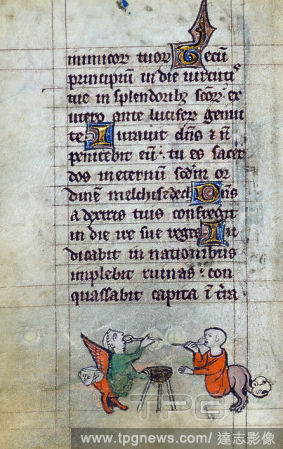 inimicor tuor Tecū
principiū in die virtuti
tue in splendorib; scōr ex
utero ante lucifer genui
te Iuravit dn̄s & n̄
penitebit eū · tu es sacer
dos in eternū scdm or
dinē melchisedech Dn̄s
a dextris tuis confregit
in die ire sue reges Iu
dicabit in nationibus
implebit ruinas : con
quassabit capita ī t̄ra
TPG
www.tpgnews.com/ 達志影像